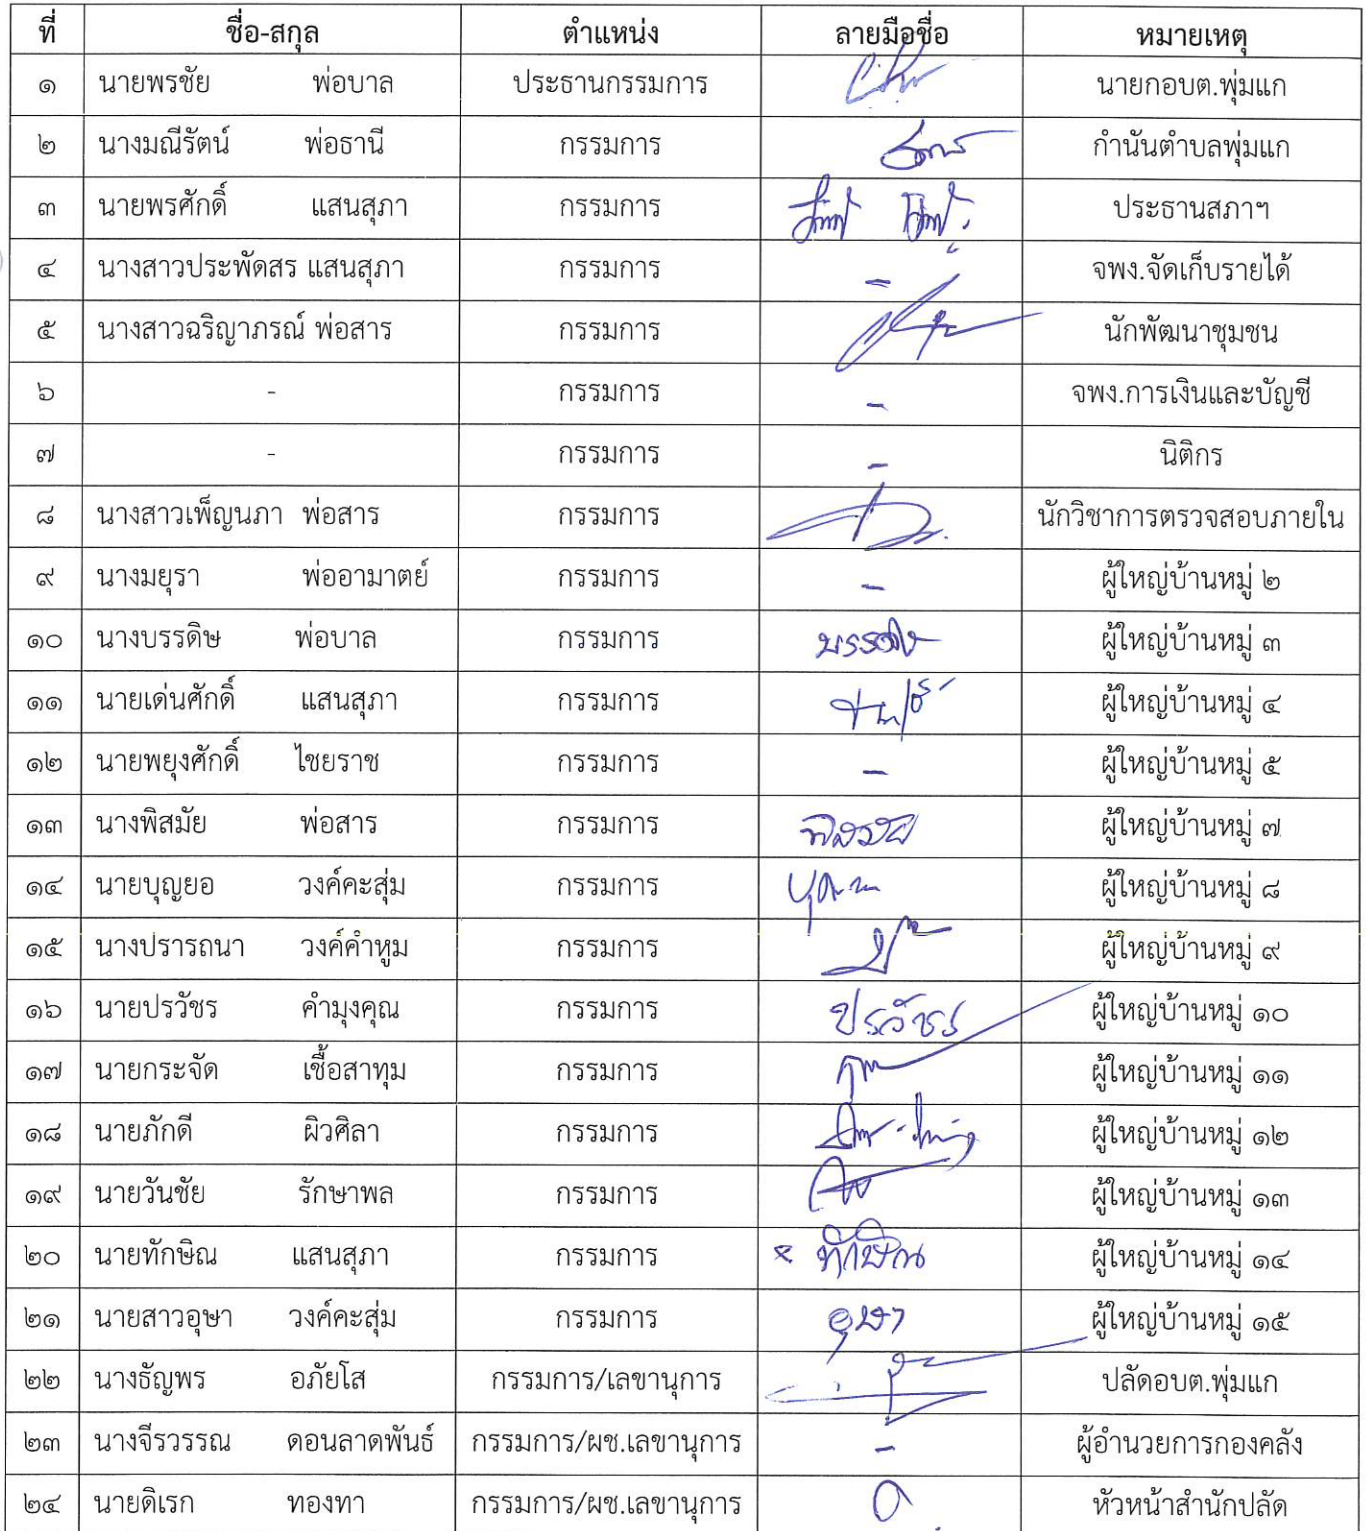 ที่ ชื่อ-สกุล ตำแหน่ง ลายมือชื่อ หมายเหตุ
๑ นายพรชัย พ่อบาล ประธานกรรมการ นายกอบต.พุ่มแก
๒ นางมณีรัตน์ พ่อธานี กรรมการ กำนันตำบลพุ่มแก
๓ นายพรศักดิ์ แสนสุภา กรรมการ ประธานสภาฯ
๔ นางสาวประพัดสร แสนสุภา กรรมการ - จพง.จัดเก็บรายได้
๕ นางสาวฉริญาภรณ์ พ่อสาร กรรมการ นักพัฒนาชุมชน
๖ - กรรมการ - จพง.การเงินและบัญชี
๗ - กรรมการ - นิติกร
๘ นางสาวเพ็ญนภา พ่อสาร กรรมการ นักวิชาการตรวจสอบภายใน
๙ นางมยุรา พ่ออามาตย์ กรรมการ - ผู้ใหญ่บ้านหมู่ ๒
๑๐ นางบรรดิษ พ่อบาล กรรมการ ผู้ใหญ่บ้านหมู่ ๓
๑๑ นายเด่นศักดิ์ แสนสุภา กรรมการ ผู้ใหญ่บ้านหมู่ ๔
๑๒ นายพยุงศักดิ์ ไชยราช กรรมการ - ผู้ใหญ่บ้านหมู่ ๕
๑๓ นางพิสมัย พ่อสาร กรรมการ พิสมัย ผู้ใหญ่บ้านหมู่ ๗
๑๔ นายบุญยอ วงค์คะสุ่ม กรรมการ ผู้ใหญ่บ้านหมู่ ๘
๑๕ นางปรารถนา วงค์คำหูม กรรมการ ผู้ใหญ่บ้านหมู่ ๙
๑๖ นายปรวัชร คำมุงคุณ กรรมการ ปรวัชร ผู้ใหญ่บ้านหมู่ ๑๐
๑๗ นายกระจัด เชื้อสาทุม กรรมการ ผู้ใหญ่บ้านหมู่ ๑๑
๑๘ นายภักดี ผิวศิลา กรรมการ ผู้ใหญ่บ้านหมู่ ๑๒
๑๙ นายวันชัย รักษาพล กรรมการ ผู้ใหญ่บ้านหมู่ ๑๓
๒๐ นายทักษิณ แสนสุภา กรรมการ ทักษิณ ผู้ใหญ่บ้านหมู่ ๑๔
๒๑ นายสาวอุษา วงค์คะสุ่ม กรรมการ อุษา ผู้ใหญ่บ้านหมู่ ๑๕
๒๒ นางธัญพร อภัยโส กรรมการ/เลขานุการ ปลัดอบต.พุ่มแก
๒๓ นางจีรวรรณ ดอนลาดพันธ์ กรรมการ/ผช.เลขานุการ - ผู้อำนวยการกองคลัง
๒๔ นายดิเรก ทองทา กรรมการ/ผช.เลขานุการ หัวหน้าสำนักปลัด